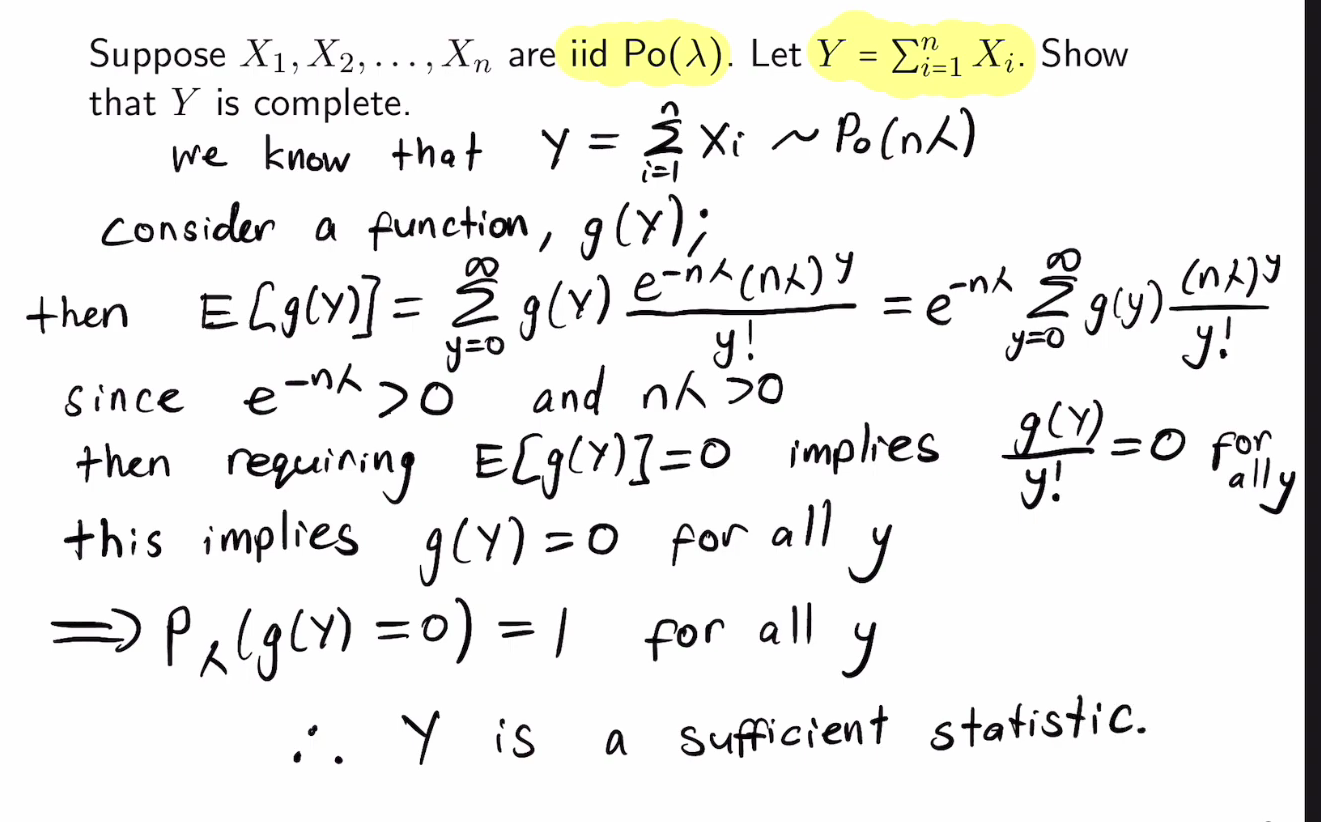 Suppose X₁, X₂, . . . , Xₙ are iid Po(λ). Let Y = ∑ⁿᵢ₌₁ Xᵢ. Show
that Y is complete.
we know that Y = ∑ⁿᵢ₌₁ Xᵢ ~ Po(nλ)
consider a function, g(Y);
then E[g(Y)] = ∑_{y=0}^{∞} g(Y) e^{-nλ}(nλ)^y / y! = e^{-nλ} ∑_{y=0}^{∞} g(y) (nλ)^y / y!
since e^{-nλ} > 0 and nλ > 0
then requiring E[g(Y)] = 0 implies g(Y)/y! = 0 for all y
this implies g(Y) = 0 for all y
⟹ P_λ(g(Y) = 0) = 1 for all y
∴ Y is a sufficient statistic.